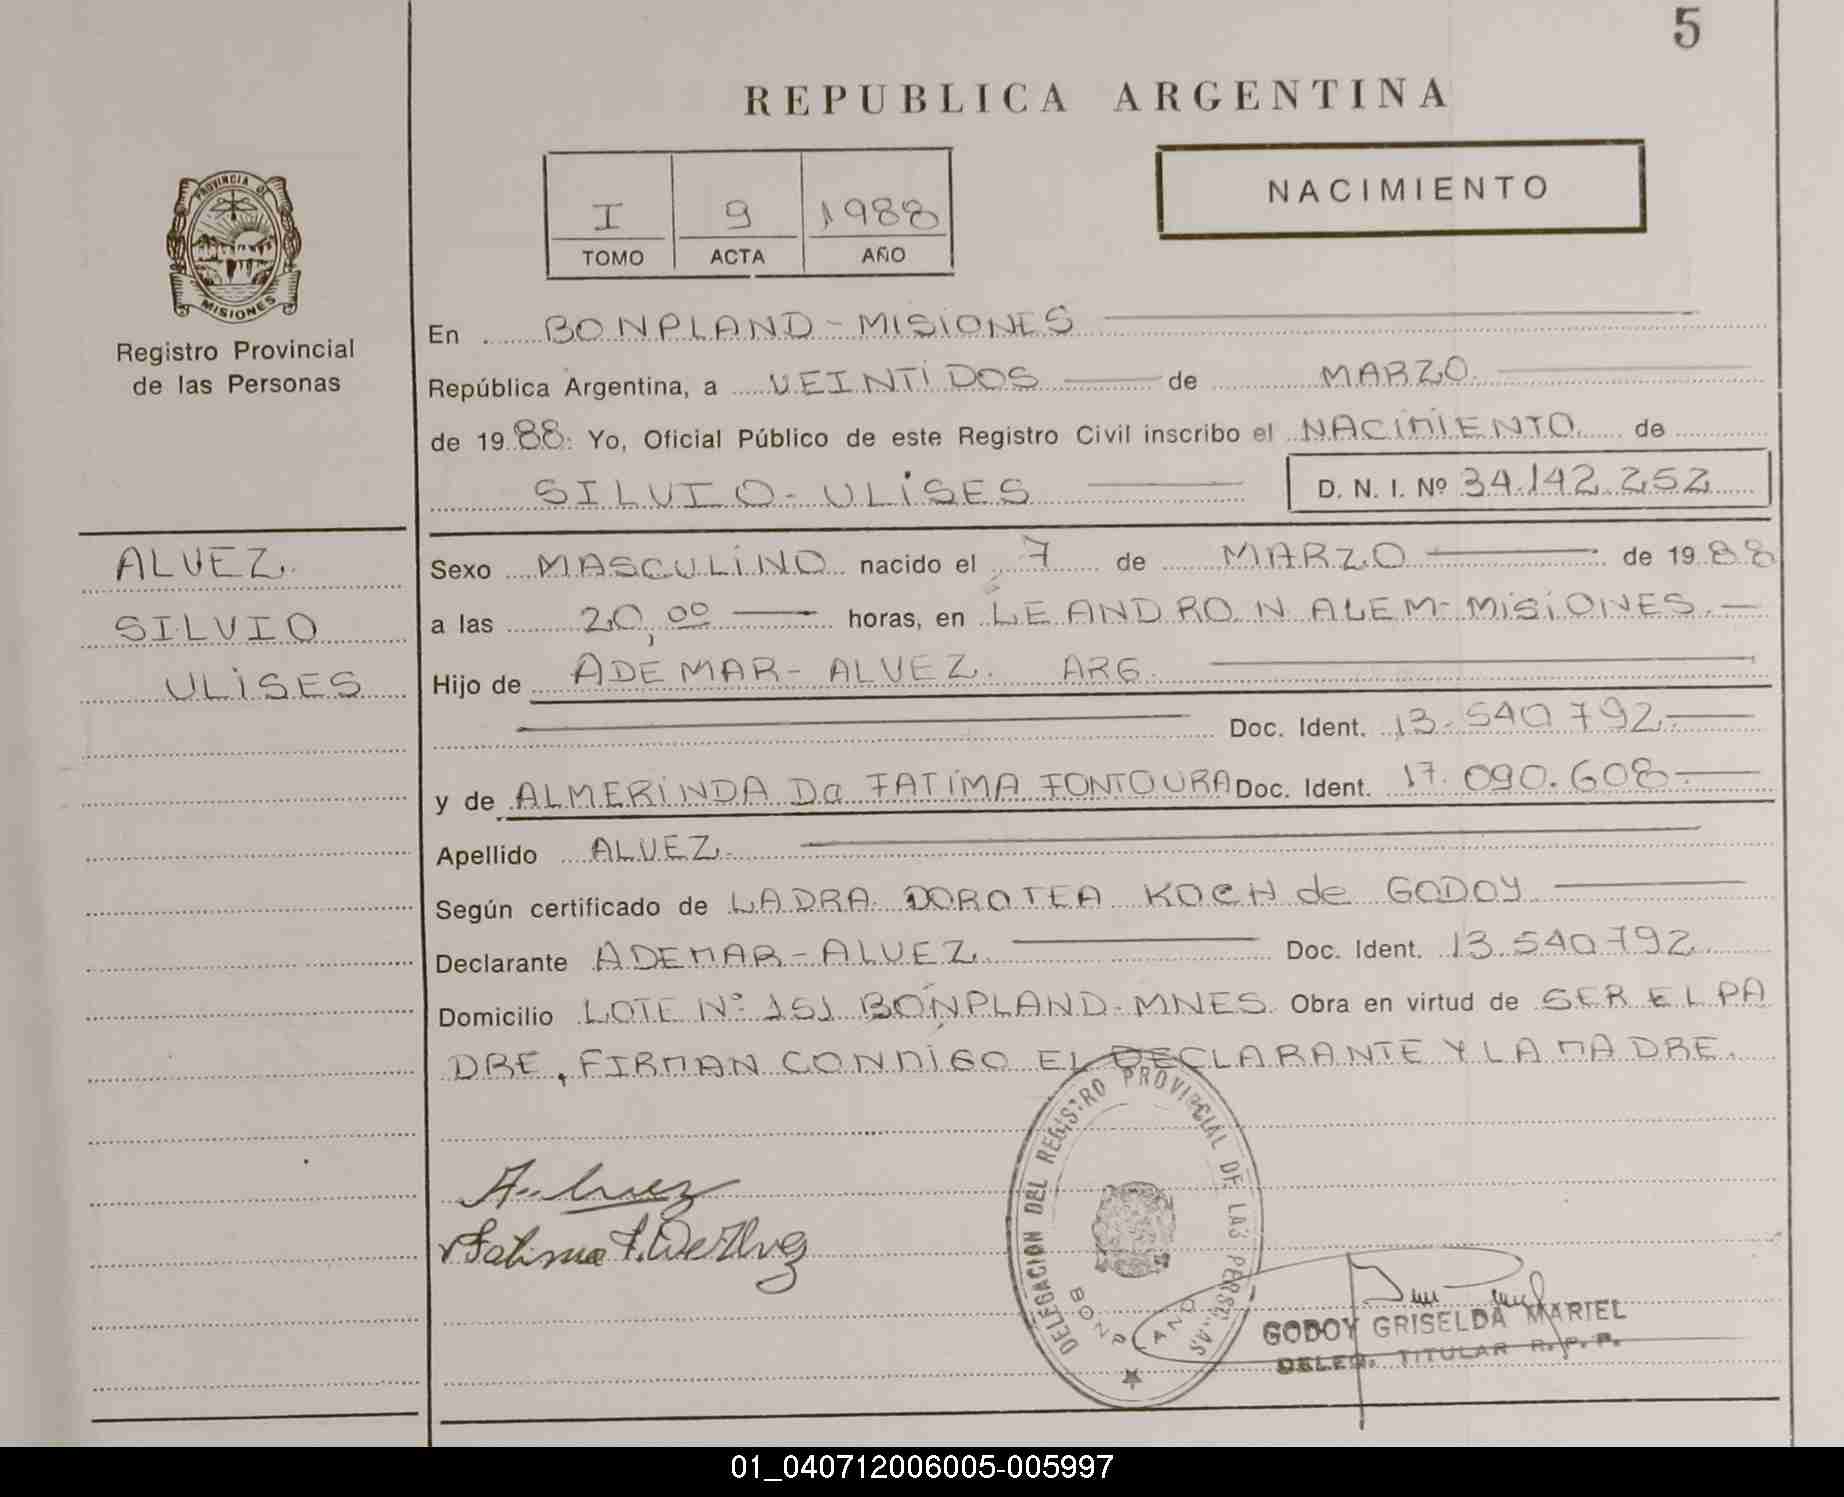 5
REPUBLICA ARGENTINA
NACIMIENTO
I 9 1988
TOMO ACTA AÑO
PROVINCIA DE MISIONES
Registro Provincial
de las Personas
En BONPLAND - MISIONES
República Argentina, a VEINTIDOS de MARZO
de 19 88. Yo, Oficial Público de este Registro Civil inscribo el NACIMIENTO de
SILVIO - ULISES D. N. I. Nº 34.142.252
ALVEZ
SILVIO
ULISES
Sexo MASCULINO nacido el 7 de MARZO de 19 88
a las 20,00 horas, en LEANDRO N ALEM - MISIONES.
Hijo de ADEMAR - ALVEZ. ARG.
Doc. Ident. 13.540.792
y de ALMERINDA Da FATIMA FONTOURA Doc. Ident. 17.090.608
Apellido ALVEZ
Según certificado de LA DRA DOROTEA KOCH de GODOY
Declarante ADEMAR - ALVEZ Doc. Ident. 13.540.792
Domicilio LOTE Nº 151 BONPLAND - MNES. Obra en virtud de SER EL PA
DRE, FIRMAN CONMIGO EL DECLARANTE Y LA MADRE.
A. Alvez
Fatima F. De Alvez
DELEGACION DEL REGISTRO PROVINCIAL DE LAS PERSONAS
BONPLAND
GODOY GRISELDA MARIEL
DELEG. TITULAR R.P.P.
01_040712006005-005997